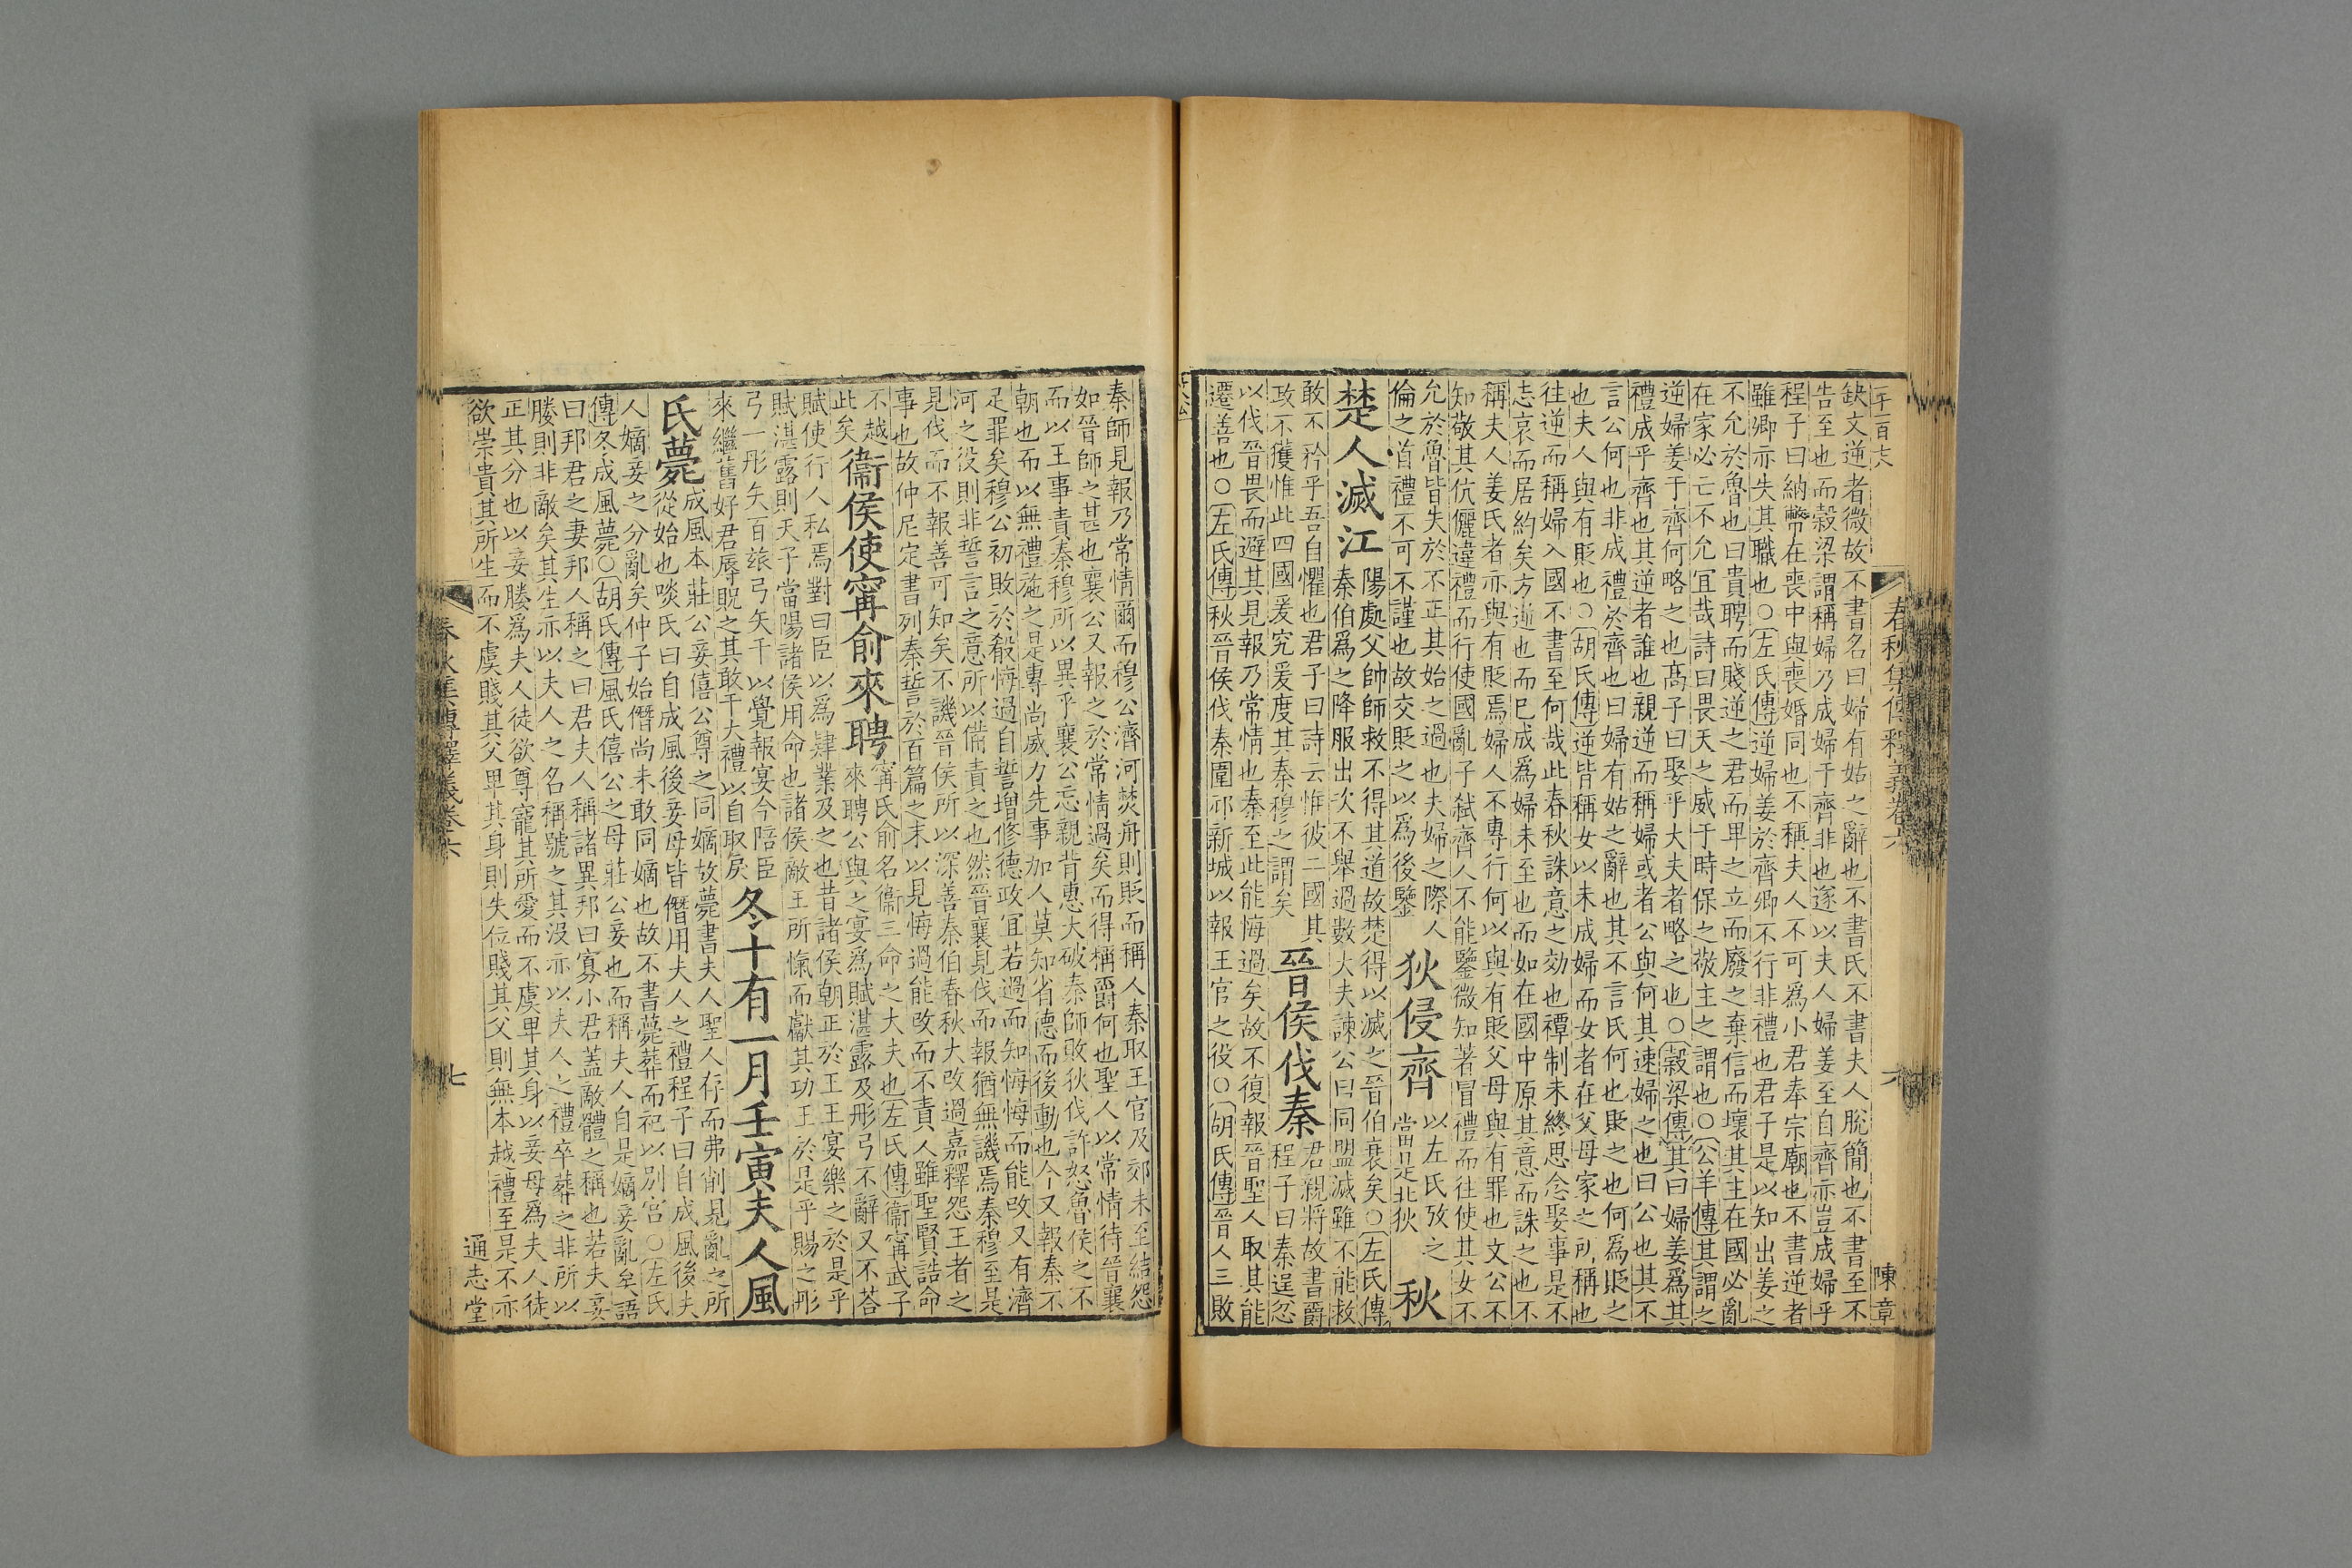 春秋集傳釋義卷六
六
陳章
缺文逆者微故不書名曰婦有姑之辭也不書氏不書夫人脫簡也不書至不
告至也而榖梁謂稱婦乃成婦于齊非也遂以夫人婦姜至自齊亦豈成婦乎
程子曰納幣在喪中與喪婚同也不稱夫人不可為小君奉宗廟也不書逆者
雖卿亦失其職也○左氏傳逆婦姜於齊卿不行非禮也君子是以知出姜之
不允於魯也曰貴聘而賤逆之君而卑之立而廢之棄信而壞其主在國必亂
在家必亡不允宜哉詩曰畏天之威于時保之敬主之謂也○公羊傳其謂之
逆婦姜于齊何略之也髙子曰娶乎大夫者略之也○榖梁傳其曰婦姜爲其
禮成乎齊也其逆者誰也親逆而稱婦或者公與何其速婦之也曰公也其不
言公何也非成禮於齊也曰婦有姑之辭也其不言氏何也貶之也何爲貶之
也夫人與有貶也○胡氏傳逆皆稱女以未成婦而女者在父母家之所稱也
往逆而稱婦入國不書至何哉此春秋誅意之効也禫制未終思念娶事是不
志哀而居約矣方逆也而已成爲婦未至也而如在國中原其意而誅之也不
稱夫人姜氏者亦與有貶焉婦人不專行何以與有貶父母與有罪也文公不
知敬其伉儷違禮而行使國亂子弑齊人不能鑒微知著冒禮而往使其女不
允於魯皆失於不正其始之過也夫婦之際人
倫之首禮不可不謹也故交貶之以爲後鑒
狄侵齊
以左氏攷之
當是北狄
秋
楚人滅江
陽處父帥師救不得其道故楚得以滅之晉伯衰矣○左氏傳
秦伯爲之降服出次不舉過數大夫諫公曰同盟滅雖不能救
敢不矜乎吾自懼也君子曰詩云惟彼二國其
政不獲惟此四國爰究爰度其秦穆之謂矣
晉侯伐秦
君親將故書爵
程子曰秦逞忿
以伐晉畏而避其見報乃常情也秦至此能悔過矣故不復報晉聖人取其能
遷善也○左氏傳秋晉侯伐秦圍邧新城以報王官之役○胡氏傳晉人三敗
秦師見報乃常情爾而穆公濟河焚舟則貶而稱人秦取王官及郊未至結怨
如晉師之甚也襄公又報之於常情過矣而得稱爵何也聖人以常情待晉襄
而以王事責秦穆所以異乎襄公忘親背惠大破秦師敗狄伐許怒魯侯之不
朝也而以無禮施之是專尚威力先事加人莫知省德而後動也今又報秦不
足罪矣穆公初敗於殽悔過自誓增修德政宜若過而知悔悔而能改又有濟
河之役則非誓言之意所以備責之也然晉襄見伐而報猶無譏焉秦穆至是
見伐而不報善可知矣不譏晉侯所以深善秦伯春秋大改過嘉釋怨王者之
事也故仲尼定書列秦誓於百篇之末以見悔過能改而不責人雖聖賢誥命
不越
此矣
衞侯使甯俞來聘
甯氏俞名衞三命之大夫也左氏傳衞甯武子
來聘公與之宴爲賦湛露及彤弓不辭又不荅
賦使行人私焉對曰臣以爲肄業及之也昔諸侯朝正於王王宴樂之於是乎
賦湛露則天子當陽諸侯用命也諸侯敵王所愾而獻其功王於是乎賜之彤
弓一彤矢百玈弓矢千以覺報宴今陪臣
來繼舊好君辱貺之其敢干大禮以自取戾
冬十有一月壬寅夫人風
氏薨
成風本莊公妾僖公尊之同嫡故薨書夫人聖人存而弗削見亂之所
從始也啖氏曰自成風後妾母皆僭用夫人之禮程子曰自成風後夫
人嫡妾之分亂矣仲子始僭尚未敢同嫡也故不書薨葬而祀以別宫○左氏
傳冬成風薨○胡氏傳風氏僖公之母莊公妾也而稱夫人自是嫡妾亂矣語
曰邦君之妻邦人稱之曰君夫人稱諸異邦曰寡小君蓋敵體之稱也若夫妾
媵則非敵矣其生亦以夫人之名稱號之其沒亦以夫人之禮卒葬之非所以
正其分也以妾媵爲夫人徒欲尊寵其所愛而不虞卑其身以妾母爲夫人徒
欲崇貴其所生而不虞賤其父卑其身則失位賤其父則無本越禮至是不亦
春秋集傳釋義卷六
七
通志堂